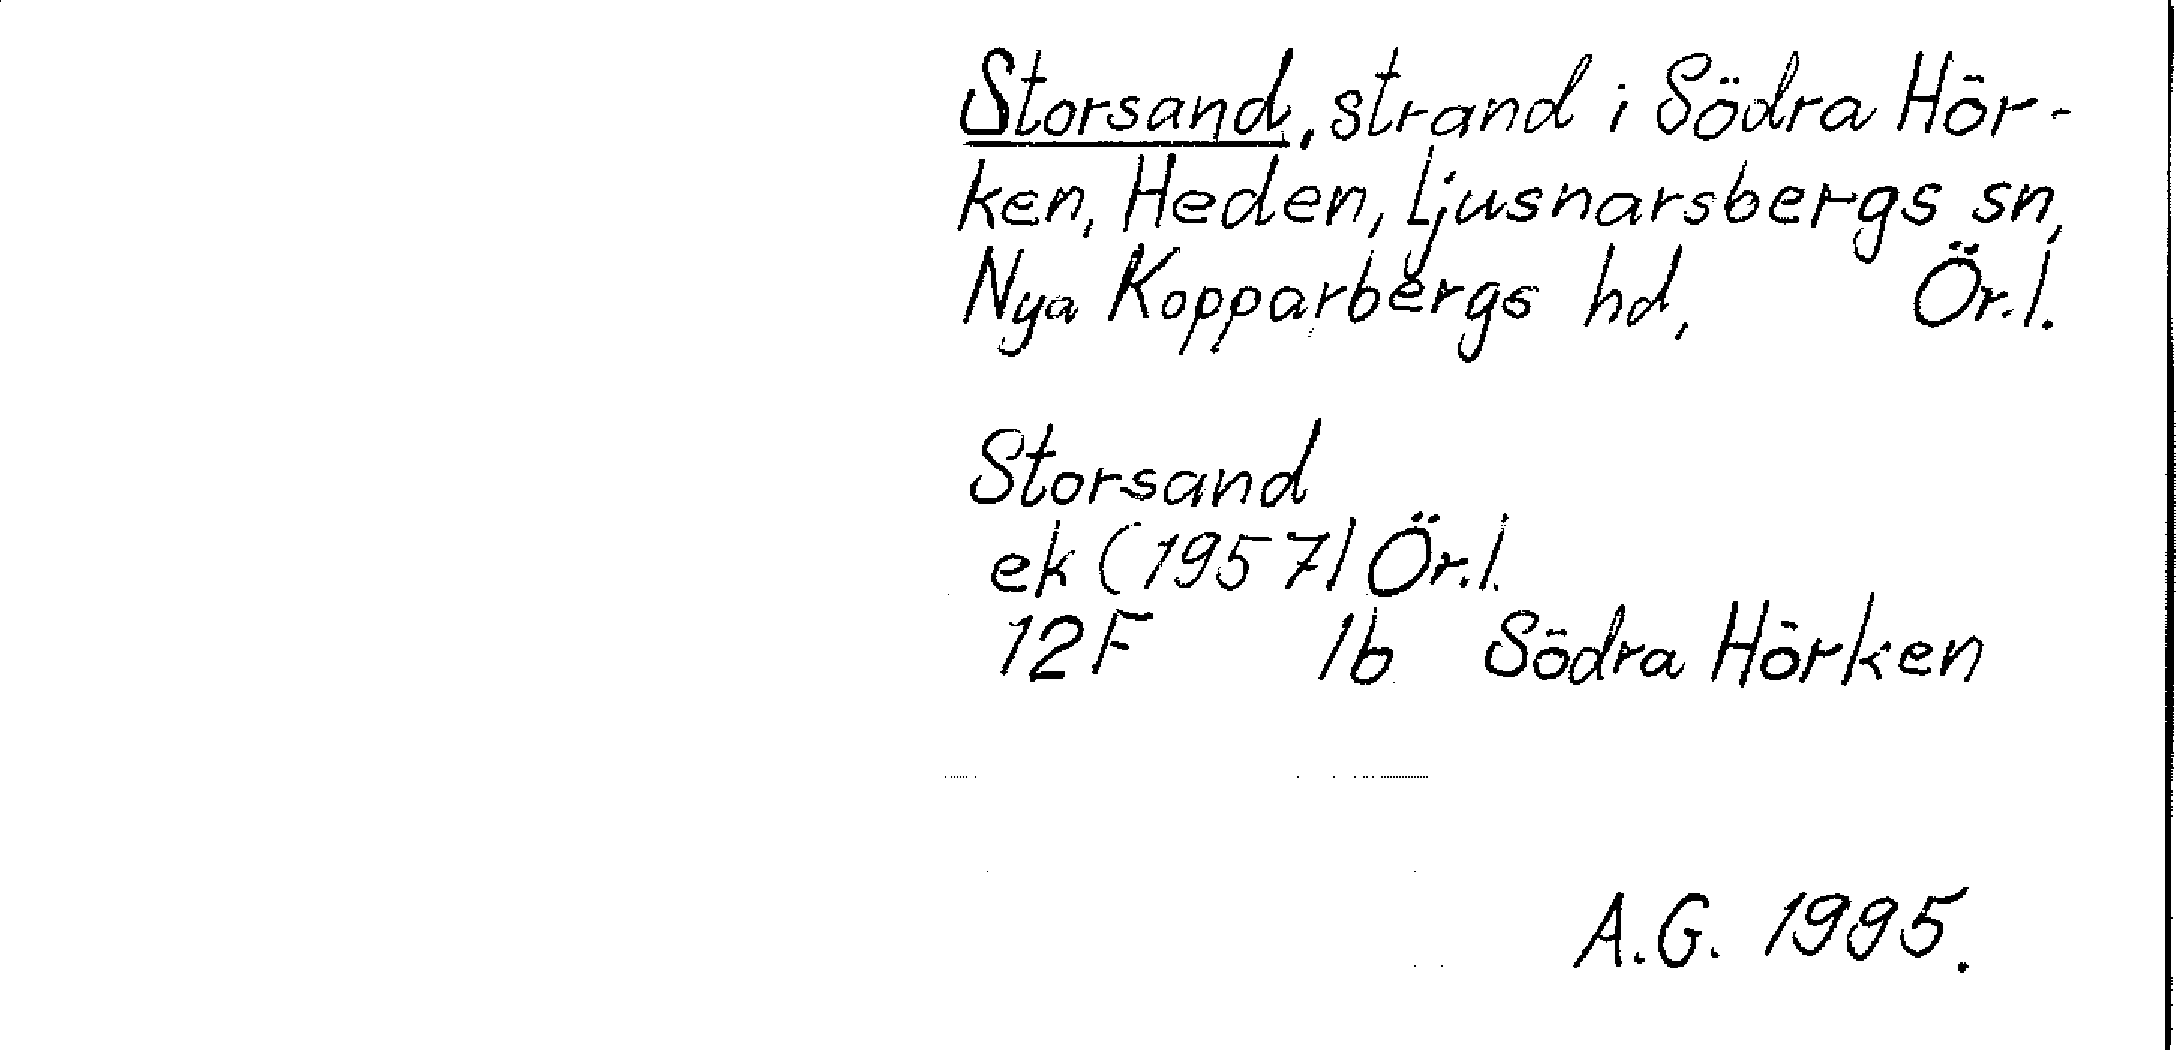 Storsand, strand i Södra Hör-
ken, Heden, Ljusnarsbergs sn,
Nya Kopparbergs hd, Ör.l.
Storsand
ek (1957) Ör.l.
12F 1b Södra Hörken
A.G. 1995.